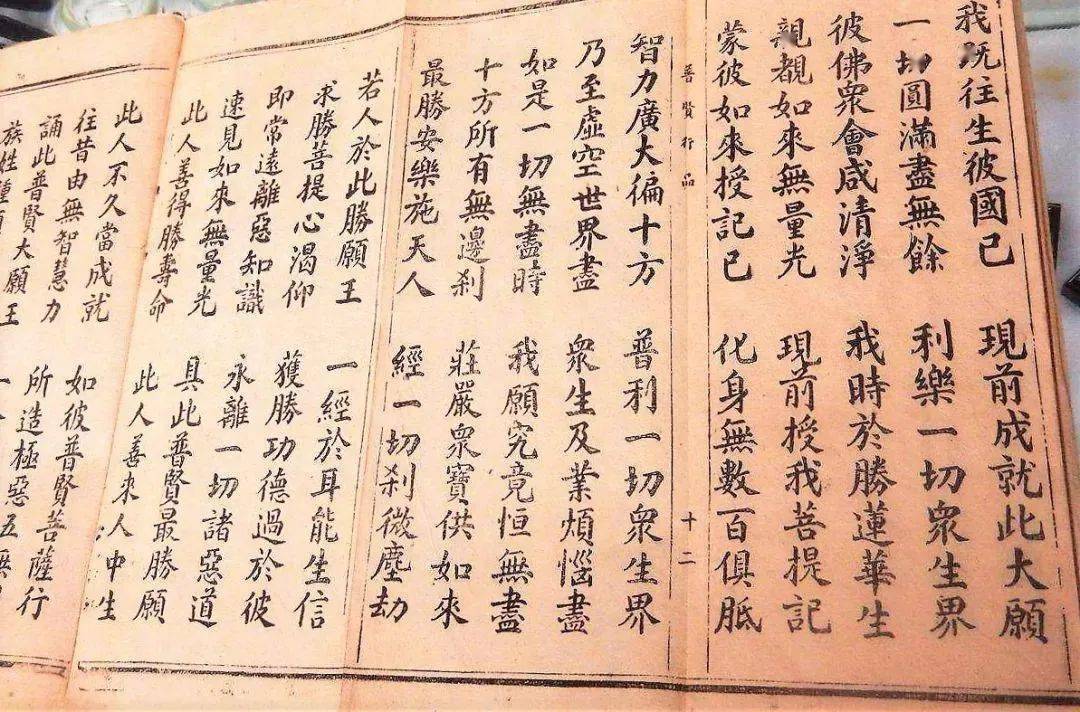 我既往生彼國已　現前成就此大願
一切圓滿盡無餘　利樂一切眾生界
彼佛眾會咸清淨　我時於勝蓮華生
親覩如來無量光　現前授我菩提記
蒙彼如來授記已　化身無數百俱胝
普賢行品　十二
智力廣大徧十方　普利一切眾生界
乃至虛空世界盡　眾生及業煩惱盡
如是一切無盡時　我願究竟恒無盡
十方所有無邊剎　莊嚴眾寶供如來
最勝安樂施天人　經一切剎微塵劫
若人於此勝願王　一經於耳能生信
求勝菩提心渴仰　獲勝功德過於彼
即常遠離惡知識　永離一切諸惡道
速見如來無量光　具此普賢最勝願
此人善得勝壽命　此人善來人中生
此人不久當成就　如彼普賢菩薩行
往昔由無智慧力　所造極惡五無
誦此普賢大願王　一
族姓種